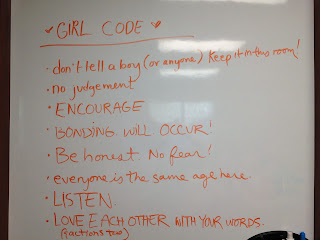 GIRL CODE
• don't tell a boy (or anyone) Keep it in this room!
• no judgement
• ENCOURAGE
• BONDING WILL OCCUR!
• Be honest. No fear!
• everyone is the same age here.
• LISTEN.
• LOVE EACH OTHER WITH YOUR WORDS.
(+actions too)